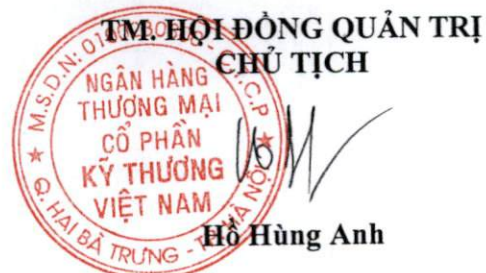 TM. HỘI ĐỒNG QUẢN TRỊ
CHỦ TỊCH
NGÂN HÀNG
THƯƠNG MẠI
CỔ PHẦN
KỸ THƯƠNG
VIỆT NAM
M.S.D.N:
C.P
Q. HAI BÀ TRƯNG - TP HÀ NỘI
Hồ Hùng Anh